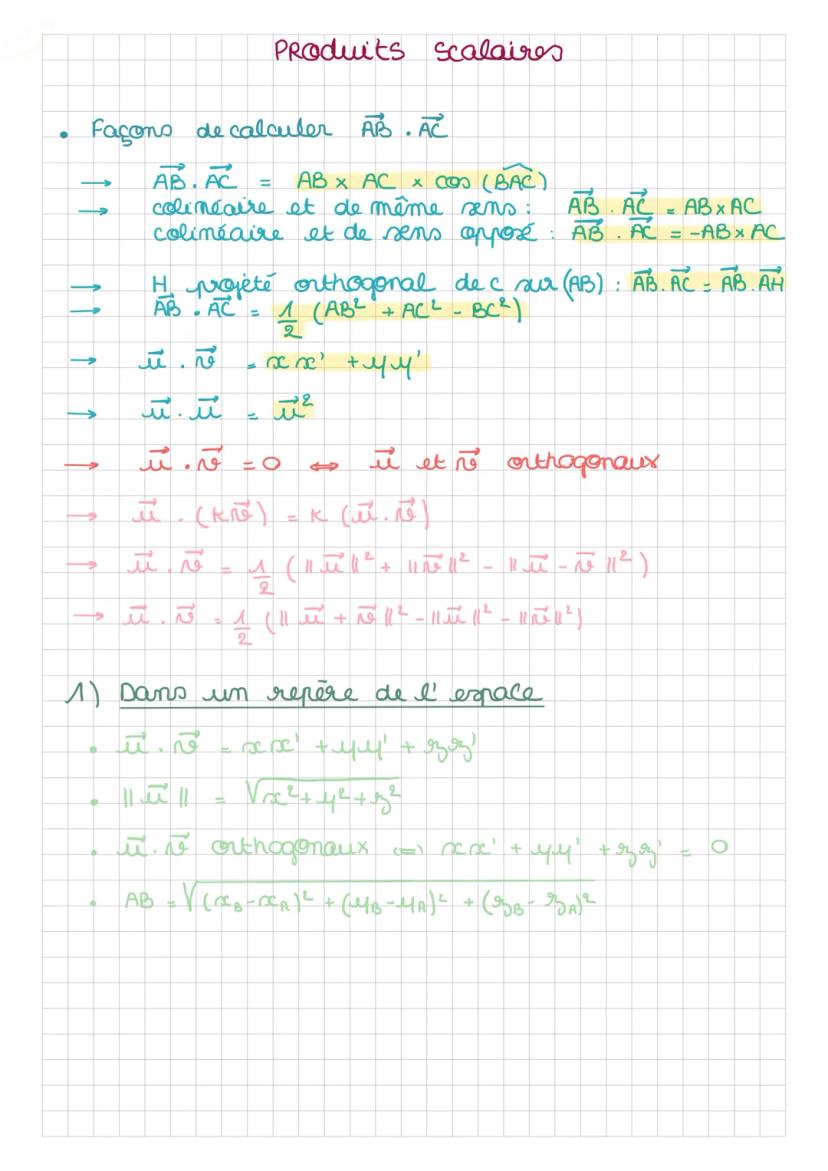 PRoduits scalaires
• Façons de calculer $\overrightarrow{AB} . \overrightarrow{AC}$
→ $\overrightarrow{AB} . \overrightarrow{AC}$ = AB × AC × cos ($\widehat{BAC}$)
→ colinéaire et de même sens : $\overrightarrow{AB} . \overrightarrow{AC}$ = AB × AC
colinéaire et de sens opposé : $\overrightarrow{AB} . \overrightarrow{AC}$ = -AB × AC
→ H projété orthogonal de C sur (AB) : $\overrightarrow{AB} . \overrightarrow{AC} = \overrightarrow{AB} . \overrightarrow{AH}$
→ $\overrightarrow{AB} . \overrightarrow{AC} = \frac{1}{2}$ (AB² + AC² - BC²)
→ $\vec{u} . \vec{v}$ = xx' + yy'
→ $\vec{u} . \vec{u} = \vec{u}^2$
→ $\vec{u} . \vec{v}$ = 0 ⇔ $\vec{u}$ et $\vec{v}$ orthogonaux
→ $\vec{u} . (k\vec{v}) = k (\vec{u} . \vec{v})$
→ $\vec{u} . \vec{v} = \frac{1}{2} (||\vec{u}||^2 + ||\vec{v}||^2 - ||\vec{u} - \vec{v}||^2)$
→ $\vec{u} . \vec{v} = \frac{1}{2} (||\vec{u} + \vec{v}||^2 - ||\vec{u}||^2 - ||\vec{v}||^2)$
1) Dans un repère de l'espace
• $\vec{u} . \vec{v}$ = xx' + yy' + zz'
• $||\vec{u}|| = \sqrt{x^2 + y^2 + z^2}$
• $\vec{u} . \vec{v}$ orthogonaux ⇔ xx' + yy' + zz' = 0
• AB = $\sqrt{(x_B - x_A)^2 + (y_B - y_A)^2 + (z_B - z_A)^2}$